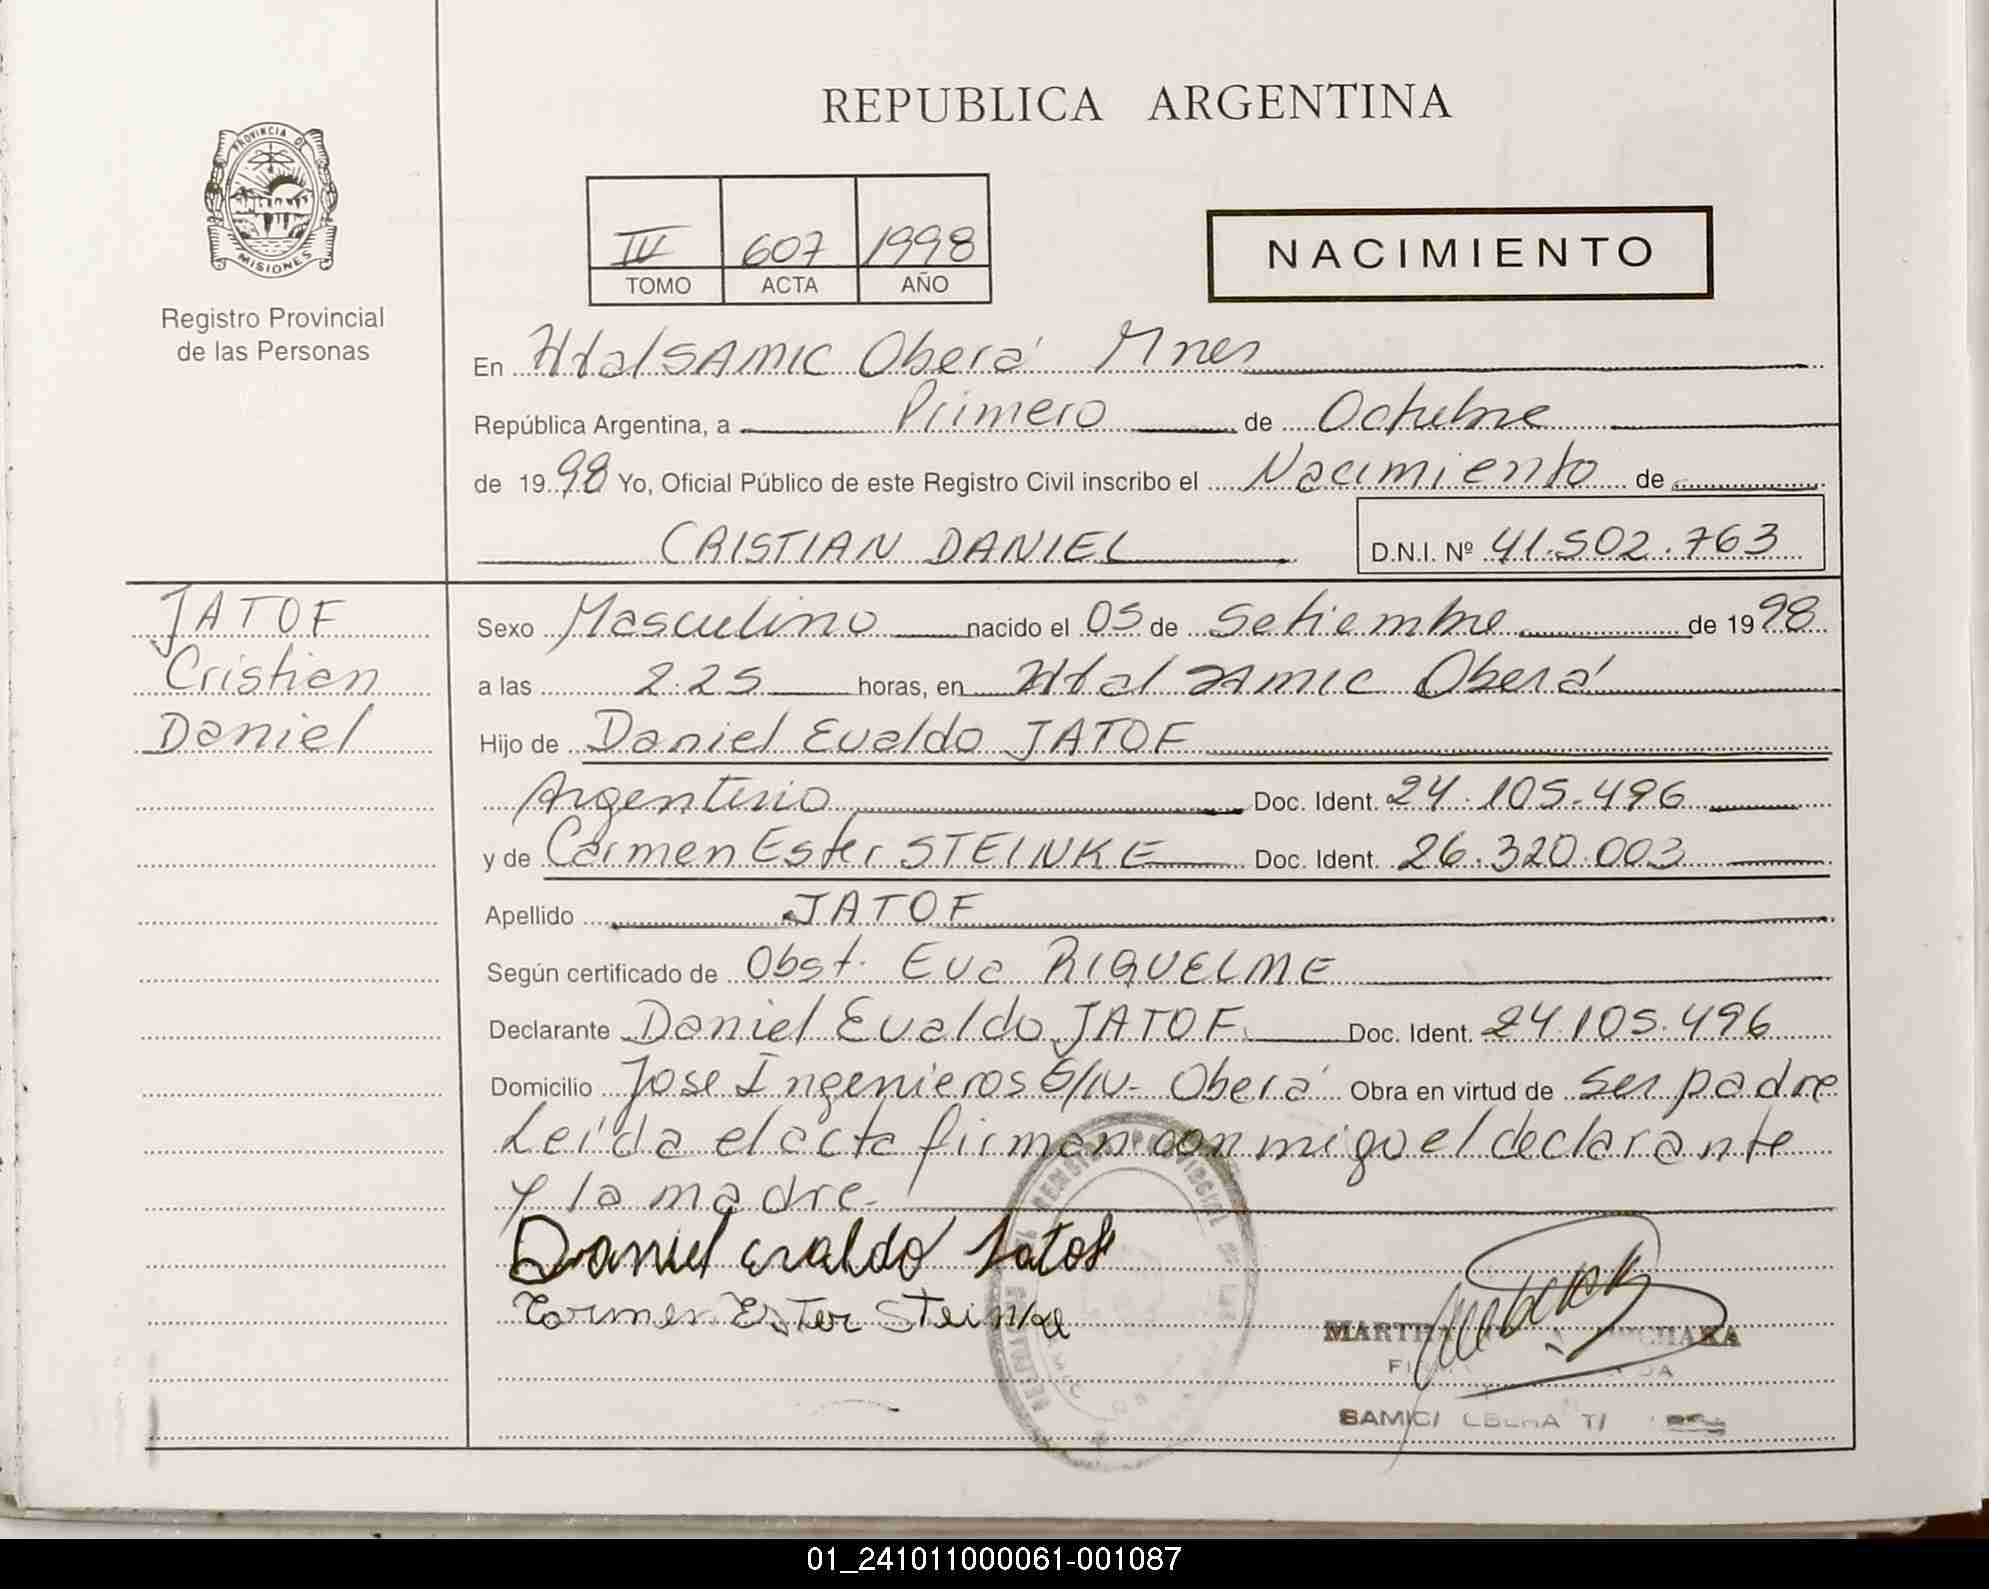 REPUBLICA ARGENTINA
PROVINCIA DE
MISIONES
Registro Provincial
de las Personas
IV 607 1998
TOMO ACTA AÑO
NACIMIENTO
En Htal SAMIC Oberá Mnes
República Argentina, a Primero de Octubre
de 1998 Yo, Oficial Público de este Registro Civil inscribo el Nacimiento de
CRISTIAN DANIEL D.N.I. Nº 41.502.763
JATOF
Cristian
Daniel
Sexo Masculino nacido el 05 de Setiembre de 1998
a las 2.25 horas, en Htal SAMIC Oberá
Hijo de Daniel Evaldo JATOF
Argentino Doc. Ident. 24.105.496
y de Carmen Ester STEINKE Doc. Ident. 26.320.003
Apellido JATOF
Según certificado de Obst. Eva RIQUELME
Declarante Daniel Evaldo JATOF Doc. Ident. 24.105.496
Domicilio Jose Ingenieros S/N- Oberá Obra en virtud de ser padre
Leída el acta firman conmigo el declarante
y la madre.
Daniel Evaldo Jatof
Carmen Ester Steinke
MARTHA
SAMIC
01_241011000061-001087